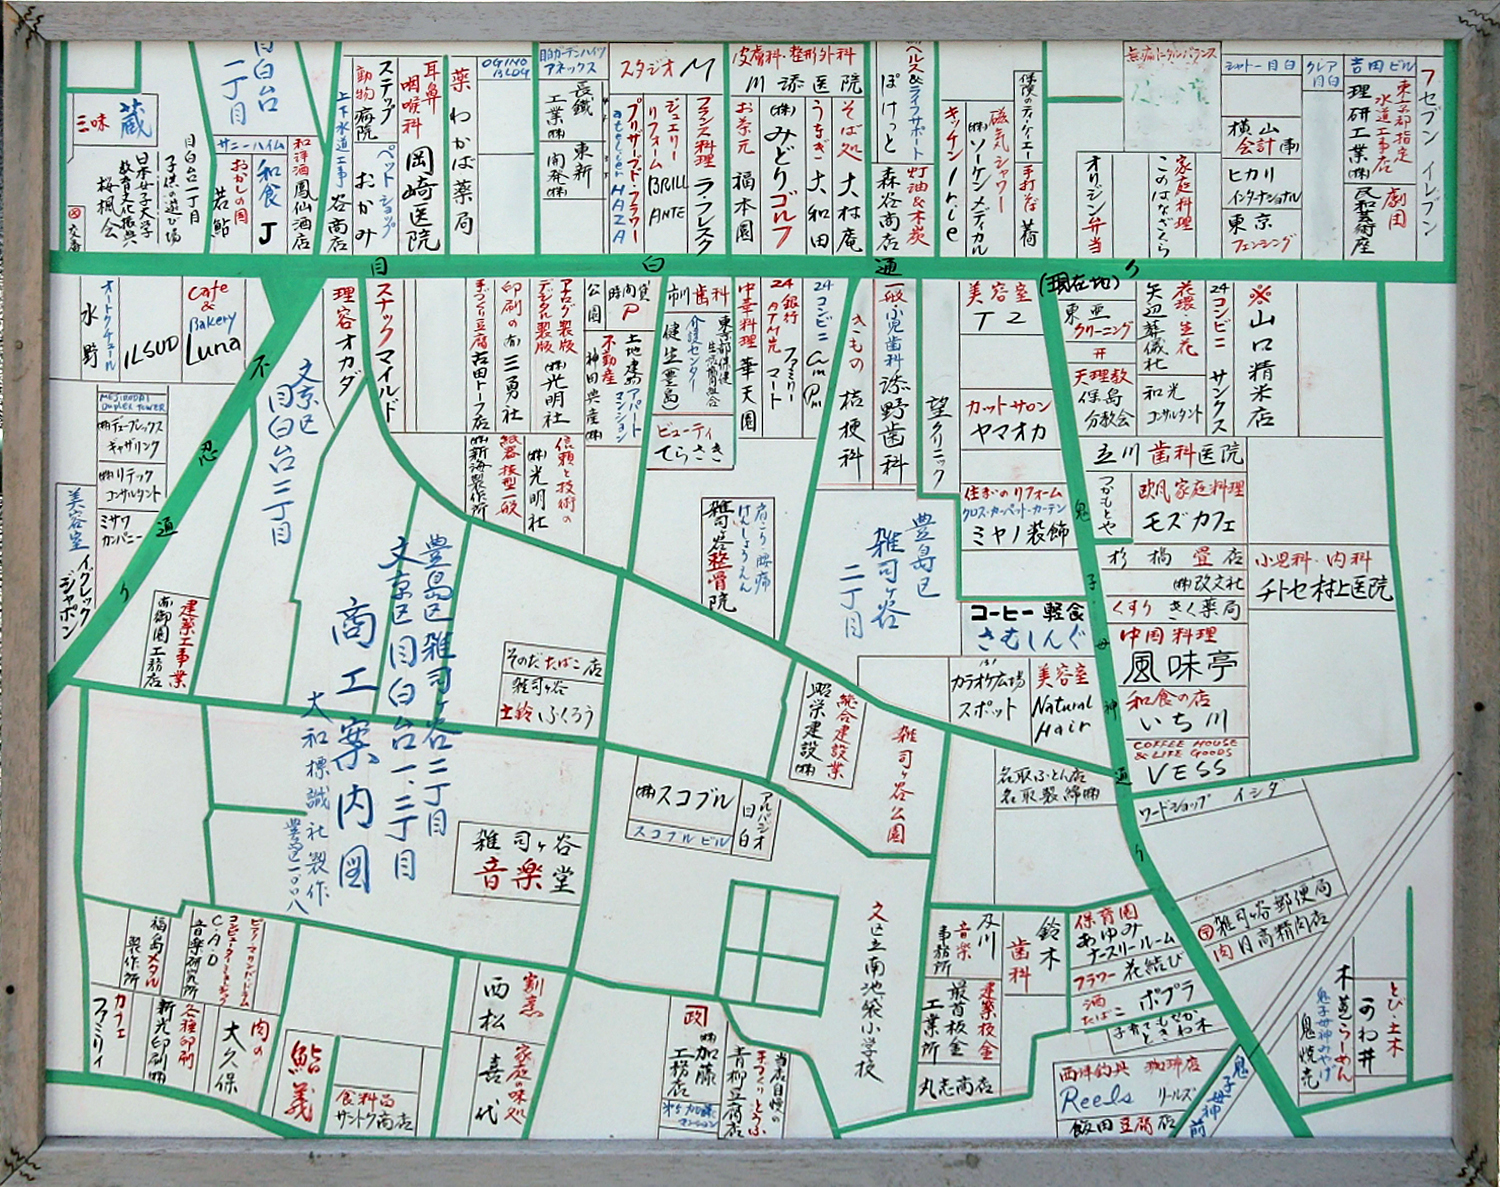 目白台
一丁目
三味
蔵
目白台一丁目
子供の遊び場
日本女子大学
教育文化振興
桜楓会
交番
サニーハイム
おかしの国
若鮎
和食
J
和洋酒
鳳仙酒店
上下水道工事
谷商店
動物病院
ステップ
ペットショップ
おかみ
耳鼻
咽喉科
岡崎医院
薬
わかば薬局
OGINO
BLDG
目白ガーデンハイツ
アネックス
長鐵
工業㈱
東新
開発㈱
スタジオM
atelier HAZA
プリザーブド・フラワー
ジュエリー
リフォーム
BRILL
ANTE
フランス料理
ラフレスク
皮膚科・整形外科
川添医院
お茶元
福本園
㈱みどりゴルフ
うなぎ
大和田
そば処
大村庵
ヘルス&ライフサポート
ぽけっと
灯油&木炭
森谷商店
キッチン
Irie
磁気シャワー
㈱ソーケンメディカル
手打そば
蕎
オリジン弁当
家庭料理
このはなざくら
無痛トータルバランス
シャトー目白
横山
会計
ヒカリ
インターナショナル
東京
フェンシング
クレア
目白
吉田ビル
東京都指定
水道工事店
理研工業㈱
劇団
民和芸術座
7
セブンイレブン
目白通り
(現在地)
オートクチュール
水野
ILSUD
Cafe
&
Bakery
Luna
理容オカダ
スナックマイルド
手づくり豆腐
古田トーフ店
印刷の
㈲三勇社
アナログ製版
デジタル製版
㈱光明社
公園
時間貸
P
不動産
神田興産㈱
土地建物
アパート
マンション
市川歯科
介護センター
健生豊島
ビューティ
てらさき
中華料理
華天園
24
銀行
ATM
ファミリーマート
24
コンビニ
am Pm
きもの
桔梗科
一般小児歯科
添野歯科
望クリニック
美容室
T2
カットサロン
ヤマオカ
住まいのリフォーム
クロス・カーペット・カーテン
ミヤノ装飾
東亜
クリーニング
天理教
保島
分教会
花環 生花
矢辺葬儀社
和光
コンサルタント
24
コンビニ
サンクス
※山口精米店
立川歯科医院
つかもとや
欧風家庭料理
モズカフェ
杉橋畳店
㈱改文社
くすり きく薬局
小児科・内科
チトセ村上医院
中国料理
風味亭
和食の店
いち川
COFFEE HOUSE
& LIFE GOODS
VESS
MEJIRODAI
DUPLEX TOWER
㈱デュープレックス
ギャザリング
㈱リテック
コンサルタント
ミサワ
カンパニー
美容室
イクレック
ジャポン
不忍通り
文京区
目白台二丁目
㈱新海製作所
紙器抜型一般
信頼と技術の
㈱光明社
雑司ヶ谷整骨院
肩こり・腰痛
けんしょうえん
豊島区
雑司ヶ谷
二丁目
コーヒー 軽食
さむしんぐ
カラオケ広場
スポット
美容室
Natural
Hair
鬼子母神通り
建築工事業
南御園工務店
そのだたばこ店
雑司ヶ谷
土鈴ふくろう
豊島区雑司ヶ谷二丁目
文京区目白台一、二丁目
商工案内図
大和標識社製作
総合建設業
昭栄建設㈱
雑司ヶ谷公園
名取ふとん店
名取製綿㈱
ワードショップ イシダ
㈱スコブル
スコブルビル
アルパジオ
目白
雑司ヶ谷
音楽堂
文区立南池袋小学校
福島メタル
製作所
C・A・D
音楽研究所
カフェ
ファミリィ
各種印刷
新光印刷㈱
肉の
大久保
鮨義
食料品
サントク商店
割烹
西松
家庭の味処
喜代
㈱加藤
工務店
手づくりとうふ
青柳豆腐店
当店自慢の
及川
音楽
事務所
鈴木
歯科
建築板金
最首板金
工業所
丸志商店
保育園
あゆみ
ナースリールーム
フラワー 花結び
酒
たばこ
ポプラ
西坪釣具 珈琲店
Reels リールズ
飯田豆腐店
〒雑司ヶ谷郵便局
肉 日高精肉店
鬼子母神前
木菟らーめん
鬼子母神みやげ
鬼焼売
とび・土木
のわ井